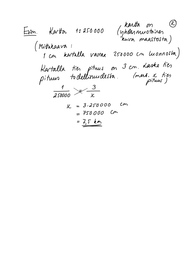 Esim. Kartta 1:250000 (kartta on
yhdenmuotoinen
kuva maastosta)
(Mittakaava:
1 cm kartalla vastaa 250000 cm luonnossa)
Kartalla tien pituus on 3 cm. Laske tien
pituus todellisuudessa. (merk. x tien
pituus)
1/250000 = 3/x
x = 3·250000 cm
= 750000 cm
= 7,5 km